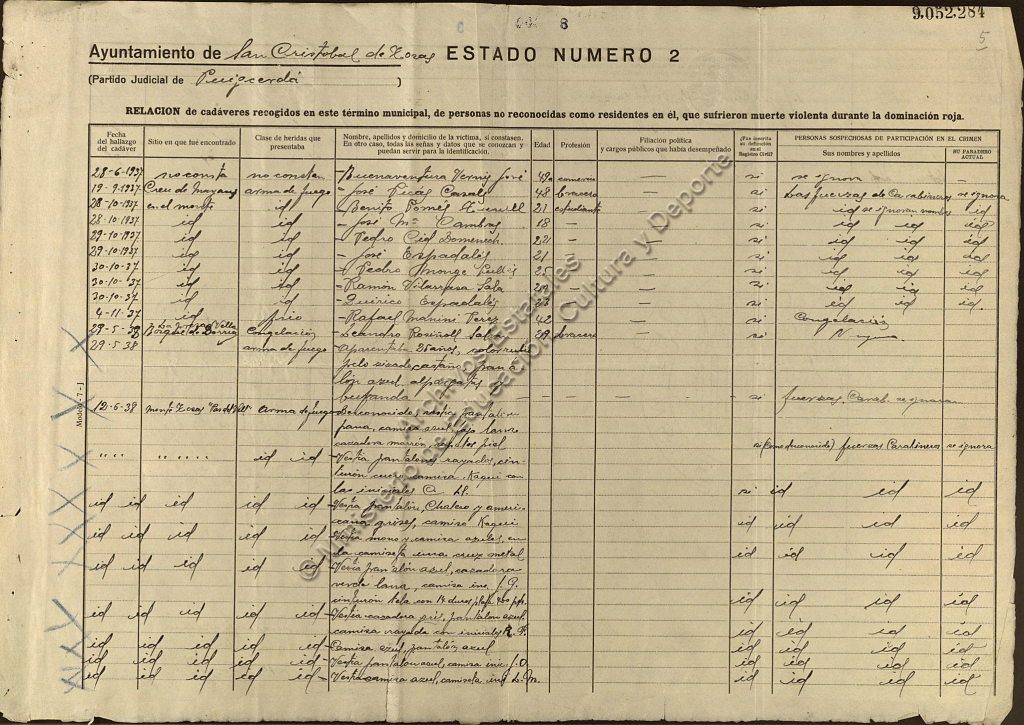 8
9.052.284
5
Ayuntamiento de San Cristobal de Tosas ESTADO NUMERO 2
(Partido Judicial de Puigcerdá )
RELACION de cadáveres recogidos en este término municipal, de personas no reconocidas como residentes en él, que sufrieron muerte violenta durante la dominación roja.
Fecha del hallazgo del cadáver
Sitio en que fué encontrado
Clase de heridas que presentaba
Nombre, apellidos y domicilio de la víctima, si constasen. En otro caso, todas las señas y datos que se conozcan y puedan servir para la identificación.
Edad
Profesión
Filiación política y cargos públicos que había desempeñado
¿Fue inscrita su defunción en el Registro Civil?
PERSONAS SOSPECHOSAS DE PARTICIPACIÓN EN EL CRIMEN
Sus nombres y apellidos
SU PARADERO ACTUAL
28-6-1937 no consta no constan - Buenaventura Vernis José 49a — si se ignora —
19-9-1937 Creu de Mayans arma de fuego - José Picás Casals 48 bracero — si Las fuerzas de Carabineros se ignora
28-10-1937 en el monte id - Benito Pomés 21 estudiante — si id se ignoran nombres id
28-10-1937 id id - José Mª Cambras 18 — — si id id id
29-10-1937 id id - Pedro Cid Domenech — — si id id id
29-10-1937 id id - José Espadalés 21 — — si id id id
30-10-37 id id - Pedro Monge — — si id id id
30-10-37 id id - Ramón Vilarrasa Sala — — si id id id
30-10-37 id id - Quirico Espadalés — — si id id id
4-11-37 id frio - Rafael Manini Perez 42 — — si Congelación
29-5-38 Congelación - Leandro Rosiñoll Sal bracero — si
29-5-38 arma de fuego - aparentaba 25 años, color
pelo castaño, pana
azul, alpargatas y
bufanda — — — — si fuerzas Carab. se ignoran
12-6-38 monte Tosas arma de fuego - Desconocido, vestia pantalón
pana, camisa azul,
cazadora marrón, zapatos piel si fuerzas Carabineros se ignora
" " " " id id - Vestia pantalones rayados, cin-
turón cuero camisa Kaqui con
las iniciales si id id id
id id id id id id - Vestia pantalón, Chaleco y ameri-
cana grises, camisa Kaqui id id id id
id id id id id id - Vestia mono y camisa azules, en
la camiseta una cruz metal id id id id
id id id id id id - Vestia pantalón azul, cazadora
verde lana, camisa inc. J. G.
cinturón tela con 14 duros plata id id id id
id id id id id id - Vestia cazadora gris, pantalon azul
camisa rayada con iniciales R. P. id id id id
id id id id id - Camisa azul, pantalón azul id id id id
id id id id id - Vestia pantalon azul, camisa inic. J. O. id id id id
id id id id id - Vestia camisa azul, camiseta inc. L. M. id id id id
Modelo - 7 - J
© Archivos Estatales
Ministerio de Educación, Cultura y Deporte